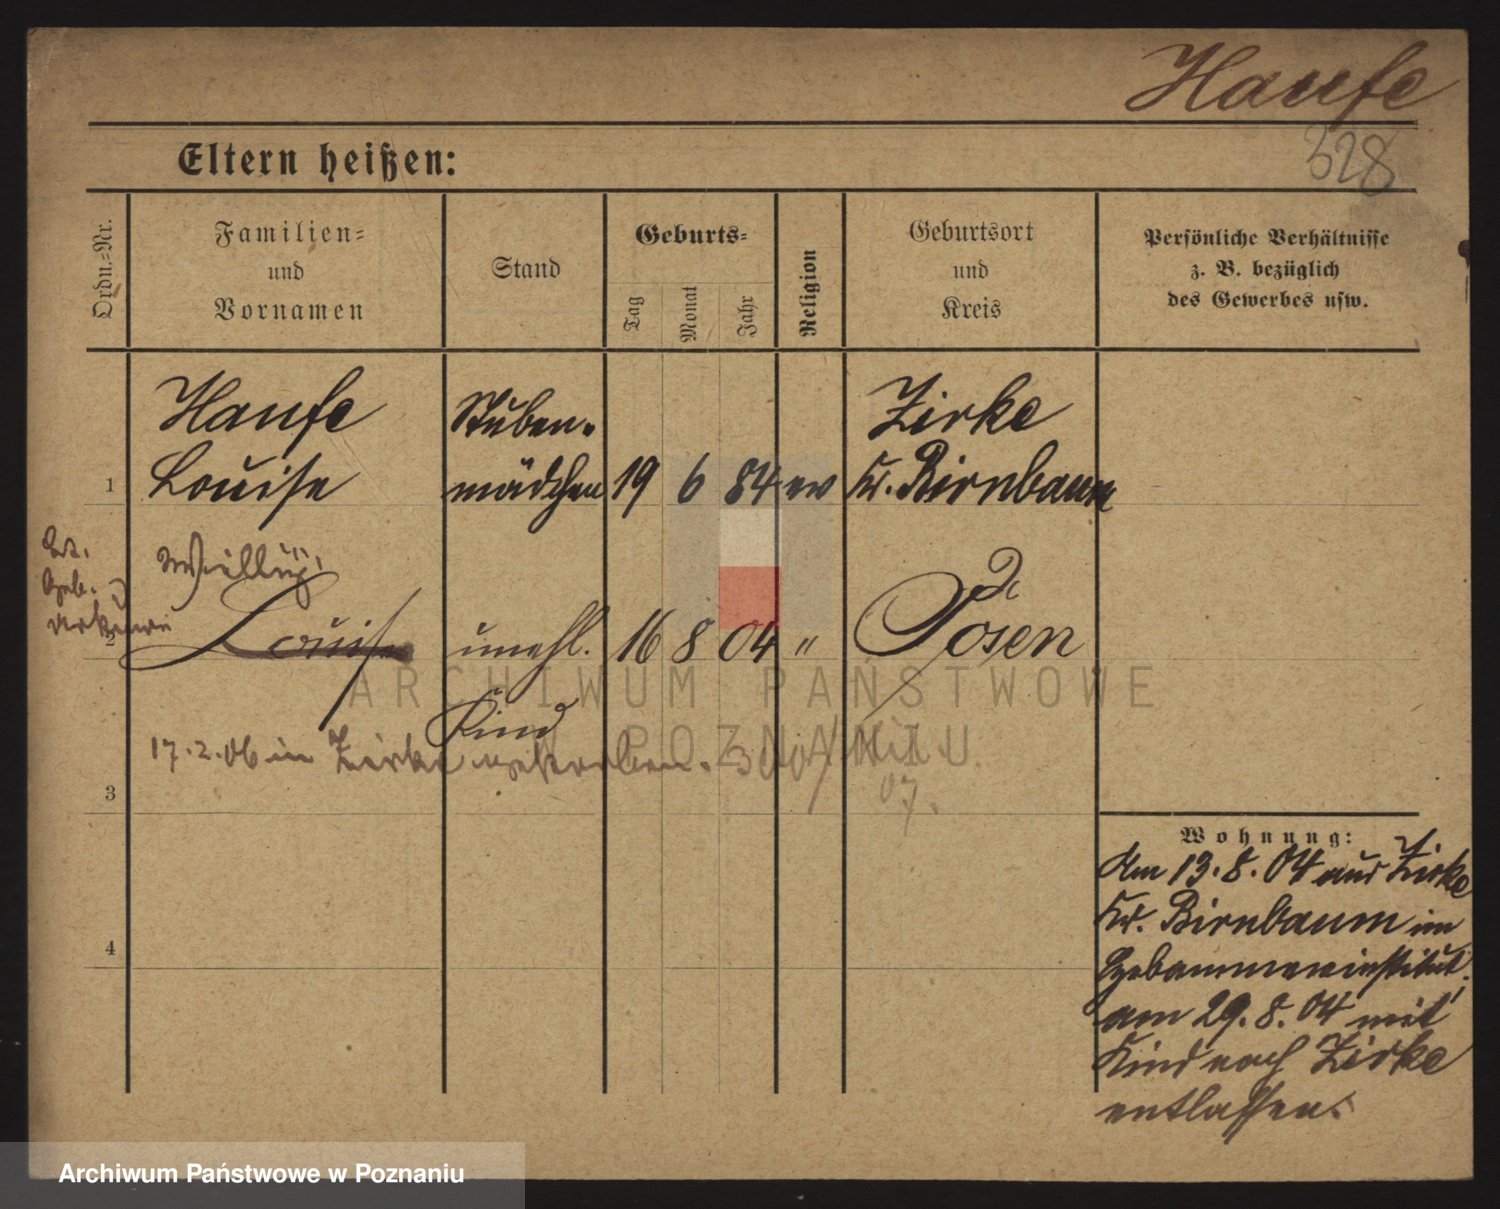 Haufe
328
Eltern heißen:
Ordn.-Nr.
Familien-
und
Vornamen
Stand
Geburts-
Tag
Monat
Jahr
Religion
Geburtsort
und
Kreis
Persönliche Verhältnisse
z. B. bezüglich
des Gewerbes usw.
Haufe
Stuben-
Zirke
1
Louise
mädchen
19
6
84
ev
Kr. Birnbaum
lt.
Geb.
Urkunde
2
Louise
unehl.
16
8
04
"
Posen
Kind
17.2.06 in Zirke gestorben.
07.
3
4
Wohnung:
Am 13.8.04 aus Zirke
Kr. Birnbaum im
Hebammeninstitut,
am 29.8.04 mit
Kind nach Zirke
entlassen.
ARCHIWUM PAŃSTWOWE
W POZNANIU
Archiwum Państwowe w Poznaniu